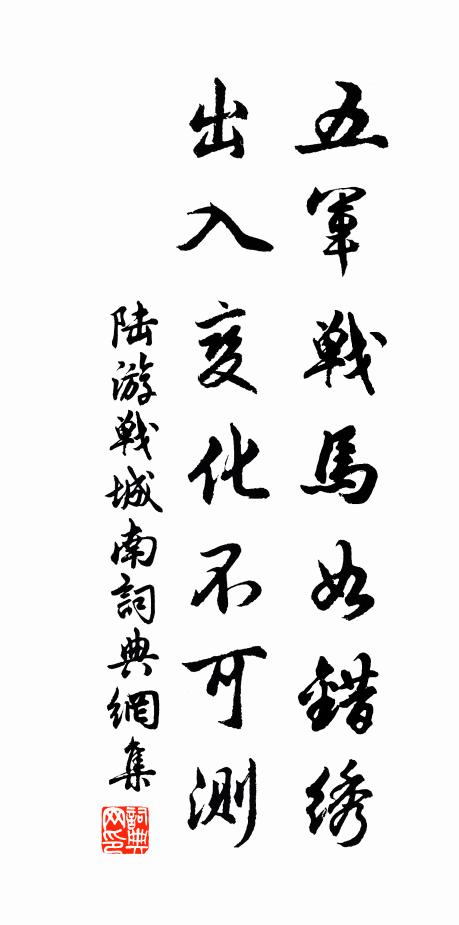 五軍戦馬如錯綉
出入变化不可測
陆游戦城南詞典網集
詞典网印